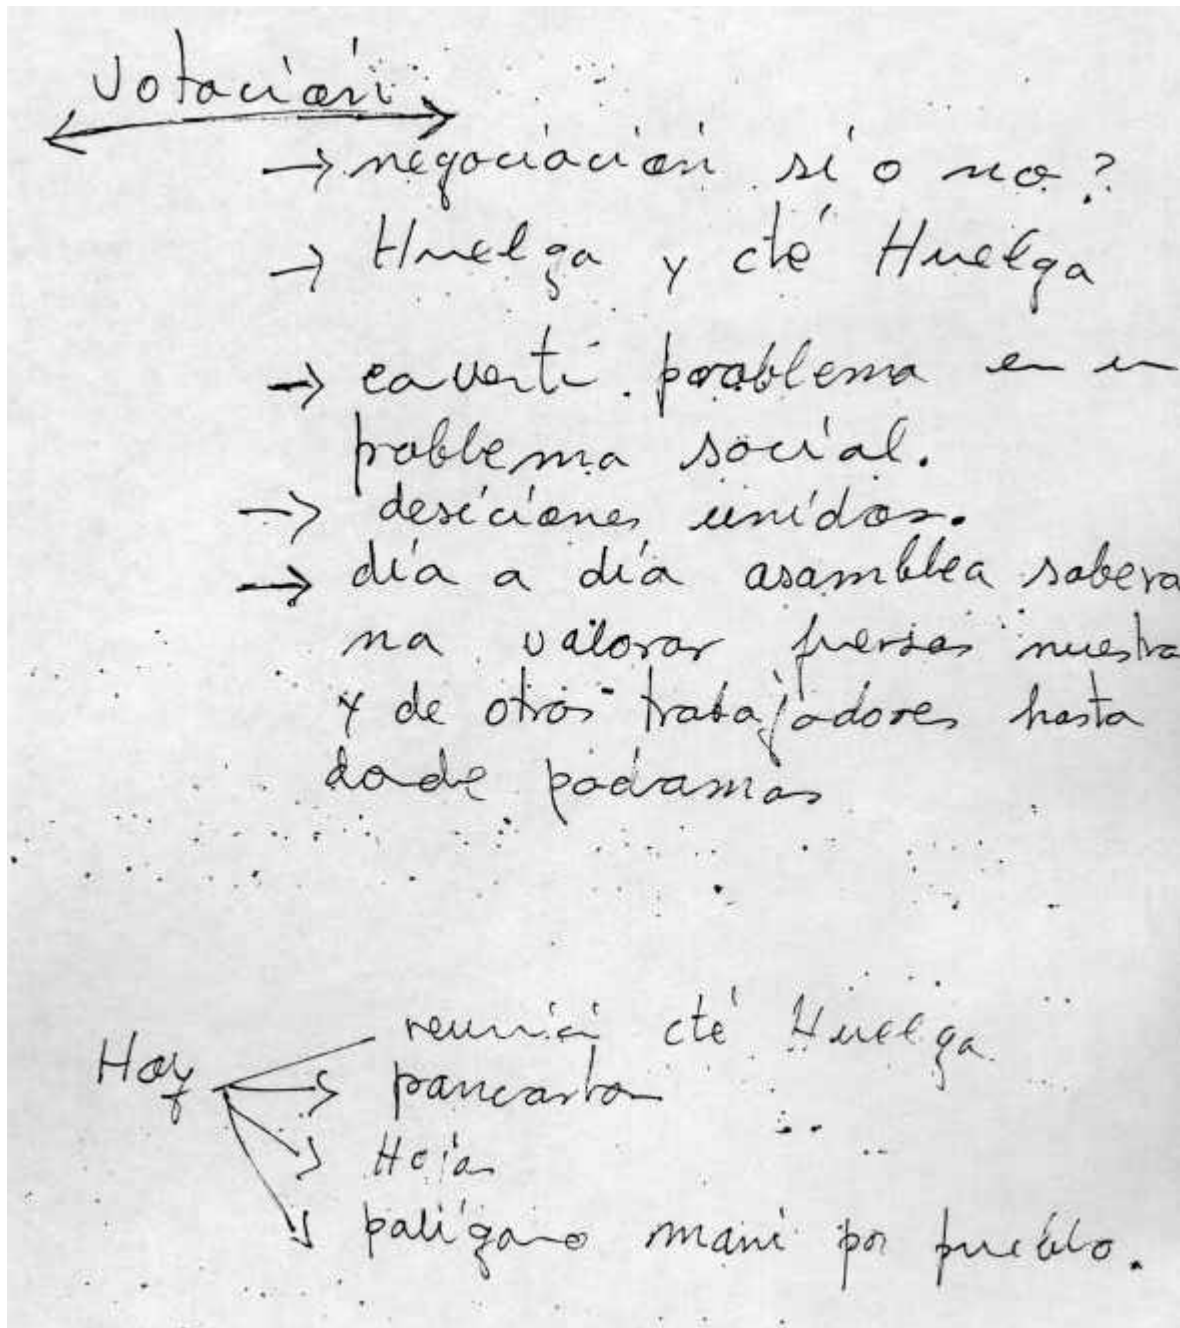 Votación
→ negociación sí o no?
→ Huelga y cté Huelga
→ converti problema en un
problema social.
→ desiciones unidos.
→ día a día asamblea sobera
na valorar fuersas nuestra
y de otros trabajadores hasta
donde podramos
Hoy
reunión cté Huelga
→ pancarta
→ Hojas
→ polígano mani por pueblo.